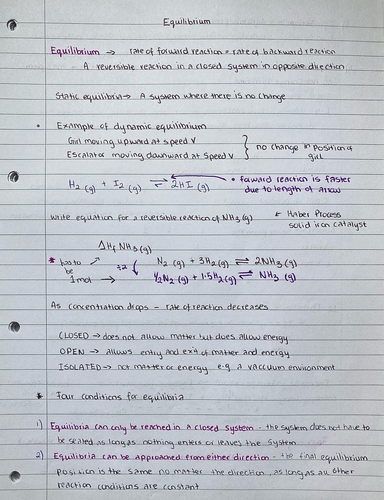 Equilibrium
Equilibrium → rate of forward reaction = rate of backward reaction
- A reversible reaction in a closed system in opposite direction
Static equilibria → A system where there is no change
• Example of dynamic equilibrium
Girl moving upward at speed V
Escalator moving downward at speed V } no change in position of girl
H₂ (g) + I₂ (g) ⇌ 2HI (g)
• forward reaction is faster
due to length of arrow
Write equation for a reversible reaction of NH₃(g)
← Haber Process
solid iron catalyst
ΔHf NH₃(g)
* has to be 1 mol →
÷2
N₂ (g) + 3H₂(g) ⇌ 2NH₃(g)
½N₂(g) + 1.5H₂(g) ⇌ NH₃ (g)
As concentration drops - rate of reaction decreases
CLOSED → does not allow matter but does allow energy
OPEN → allows entry and exit of matter and energy
ISOLATED → not matter or energy e.g. a vaccuum environment
* Four conditions for equilibria
1) Equilibria can only be reached in a closed system - the system does not have to
be sealed as long as nothing enters or leaves the system
2) Equilibria can be approached from either direction - the final equilibrium
position is the same no matter the direction, as long as all other
reaction conditions are constant